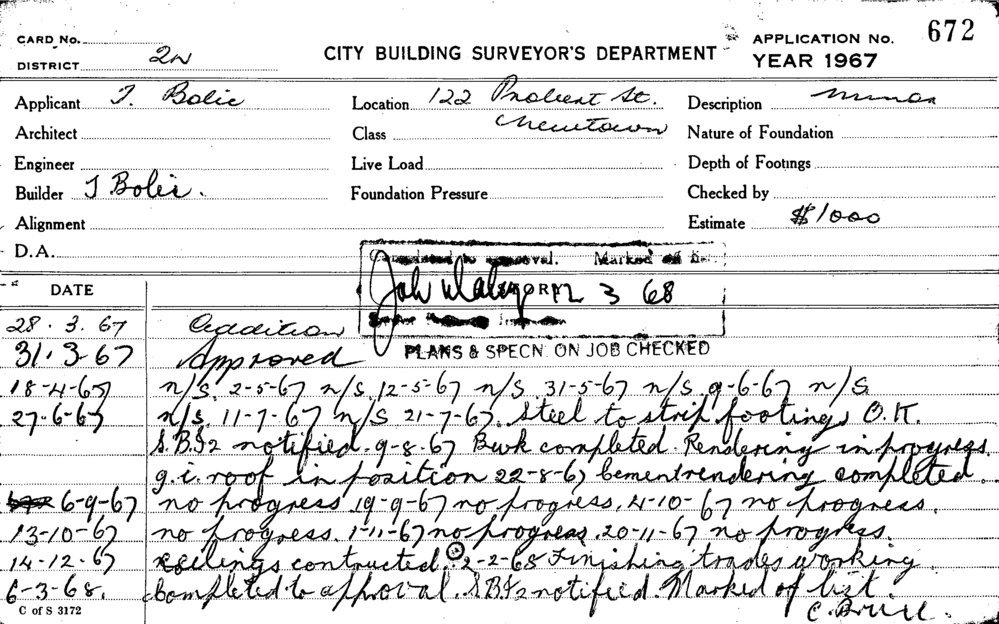 CARD No.
DISTRICT 2N
CITY BUILDING SURVEYOR'S DEPARTMENT
APPLICATION No. 672
YEAR 1967
Applicant J. Bolic Location 122 Probert St. Description Minor
Architect Class Newtown Nature of Foundation
Engineer Live Load Depth of Footings
Builder J Bolic. Foundation Pressure Checked by
Alignment Estimate $1000
D.A.
Completed to approval. Marked off
DATE 12 3 68
28.3.67 Addition
PLANS & SPECN. ON JOB CHECKED
31.3.67 Approved
18-4-67 n/s. 2-5-67 n/s. 12-5-67 n/s. 31-5-67 n/s. 9-6-67 n/s.
27-6-67 n/s. 11-7-67 n/s 21-7-67. Steel to strip footings O.K.
S.B.I2 notified. 9-8-67 Bwk completed. Rendering in progress.
g.i. roof in position 22-8-67 Cement rendering completed.
6-9-67 no progress. 19-9-67 no progress. 4-10-67 no progress.
13-10-67 no progress. 1-11-67 no progress. 20-11-67 no progress.
14-12-67 ceilings contructed. 2-2-68 Finishing trades working.
6-3-68. Completed to approval. S.B.I2 notified. Marked of list.
C of S 3172